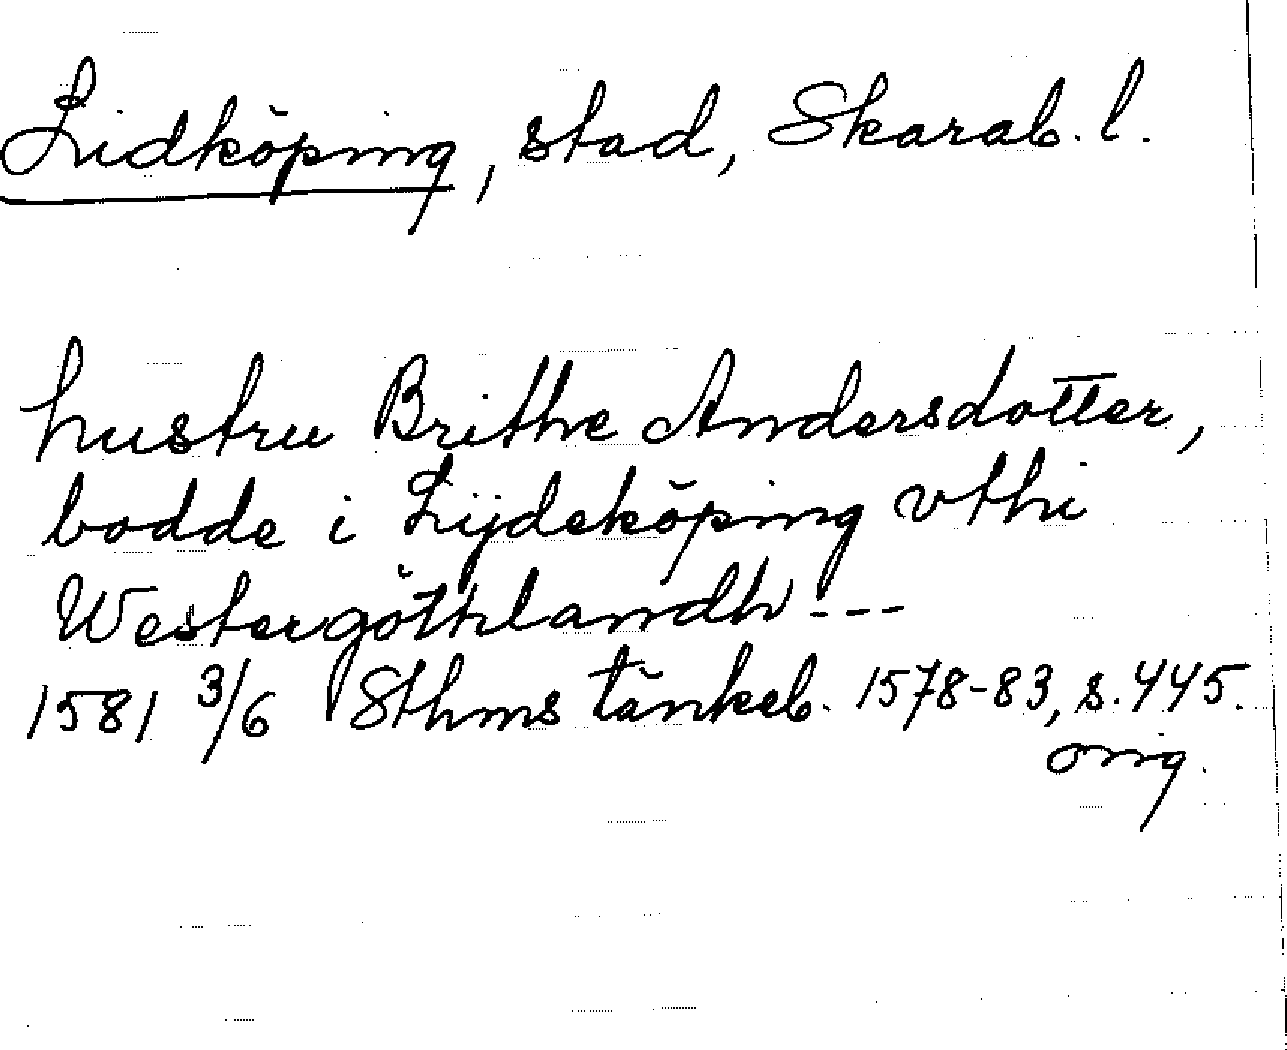 Lidköping, stad, Skarab. l.
hustru Brithe Andersdotter,
bodde i Lijdeköping vthi
Westergöthlandh ---
1581 3/6 Sthms tänkeb. 1578-83, s. 445.
orig.